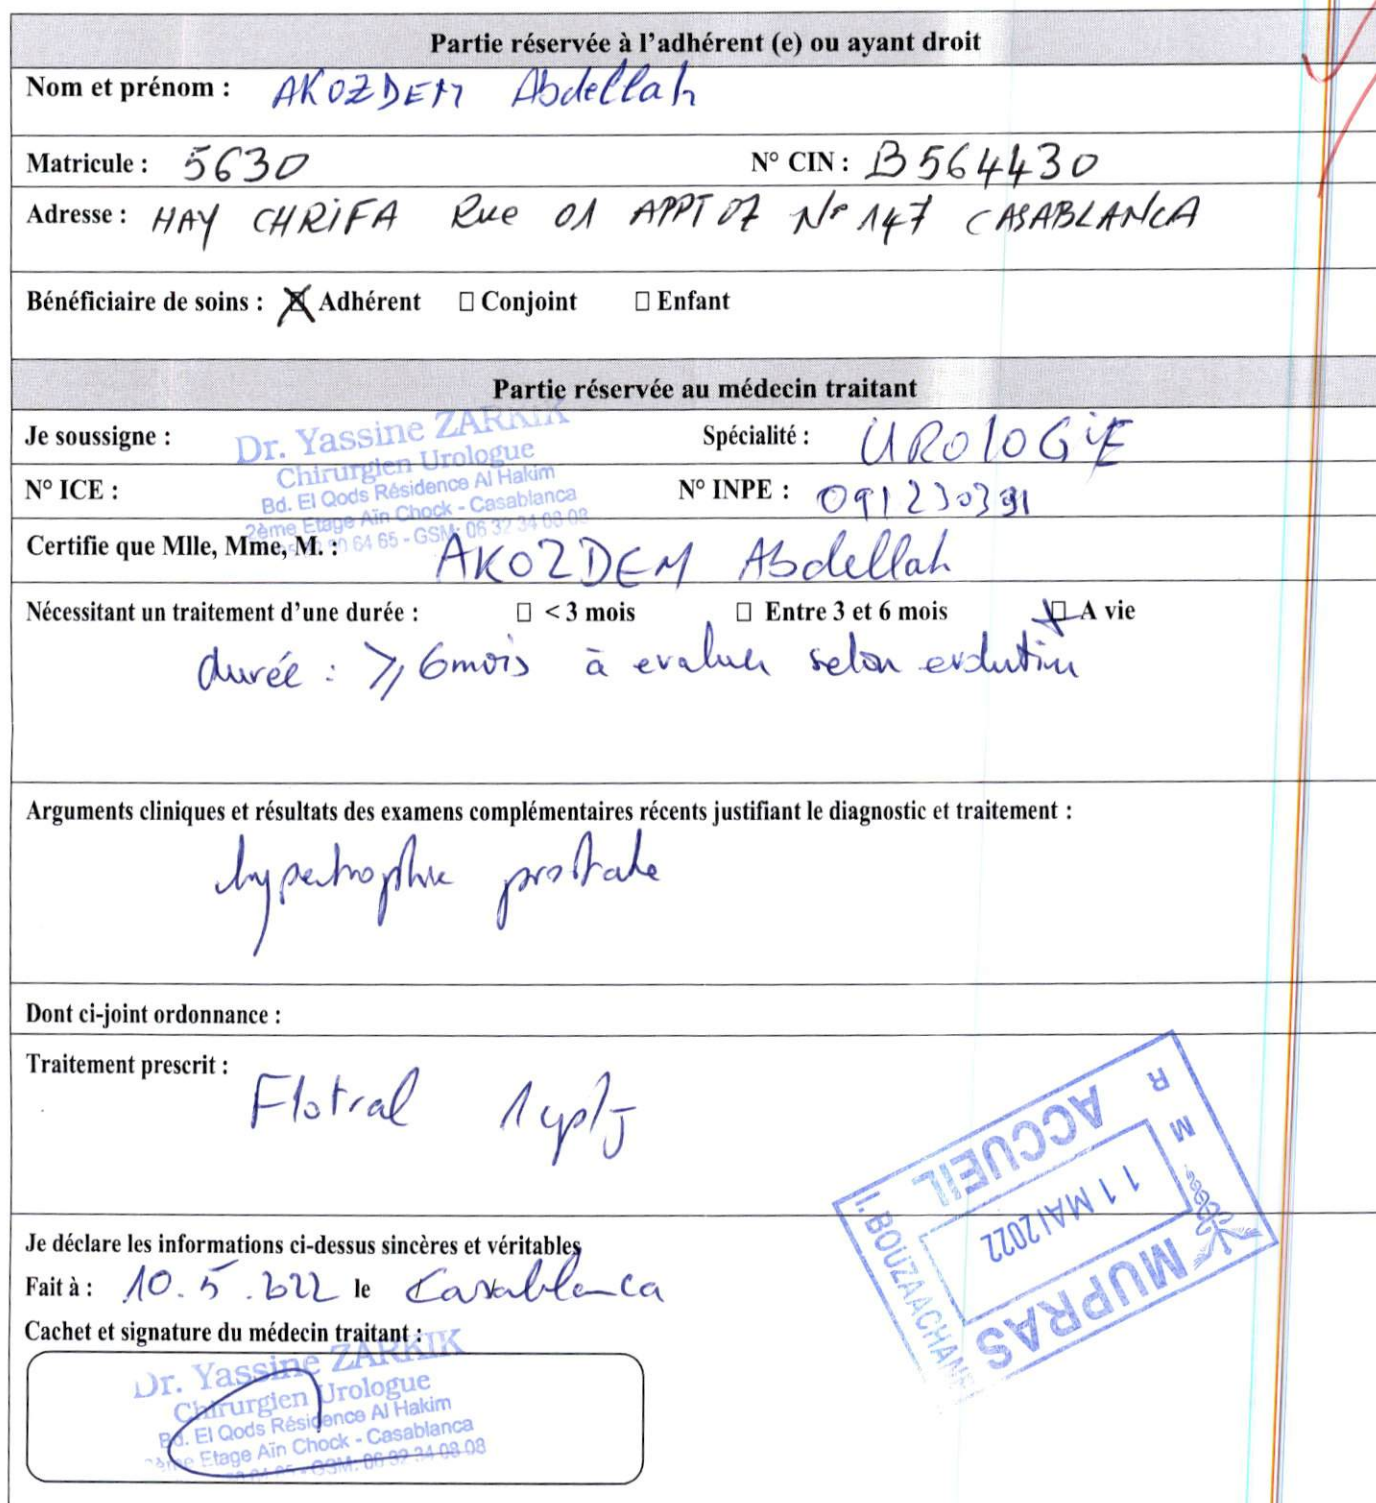 Partie réservée à l'adhérent (e) ou ayant droit
Nom et prénom : AKOZDEM Abdellah
Matricule : 5630 N° CIN : B564430
Adresse : HAY CHRIFA Rue 01 APPT 07 N° 147 CASABLANCA
Bénéficiaire de soins : Adhérent □ Conjoint □ Enfant
Partie réservée au médecin traitant
Je soussigne : Spécialité : UROLOGIE
Dr. Yassine ZARKIK
Chirurgien Urologue
Bd. El Qods Résidence Al Hakim
2ème Etage Aïn Chock - Casablanca
64 65 - GSM: 06 32 34 08 08
N° ICE : N° INPE : 091230391
Certifie que Mlle, Mme, M. : AKOZDEM Abdellah
Nécessitant un traitement d'une durée : □ < 3 mois □ Entre 3 et 6 mois □ A vie
durée : ≥ 6 mois à evaluer selon evolution
Arguments cliniques et résultats des examens complémentaires récents justifiant le diagnostic et traitement :
hypertrophie prostate
Dont ci-joint ordonnance :
Traitement prescrit : Flotral 1 cp/J
MUPRAS
ACCUEIL
11 MAI 2022
Je déclare les informations ci-dessus sincères et véritables
Fait à : 10.5.2022 le Casablanca
Cachet et signature du médecin traitant :
Dr. Yassine ZARKIK
Chirurgien Urologue
Bd. El Qods Résidence Al Hakim
Etage Aïn Chock - Casablanca
GSM: 06 32 34 08 08